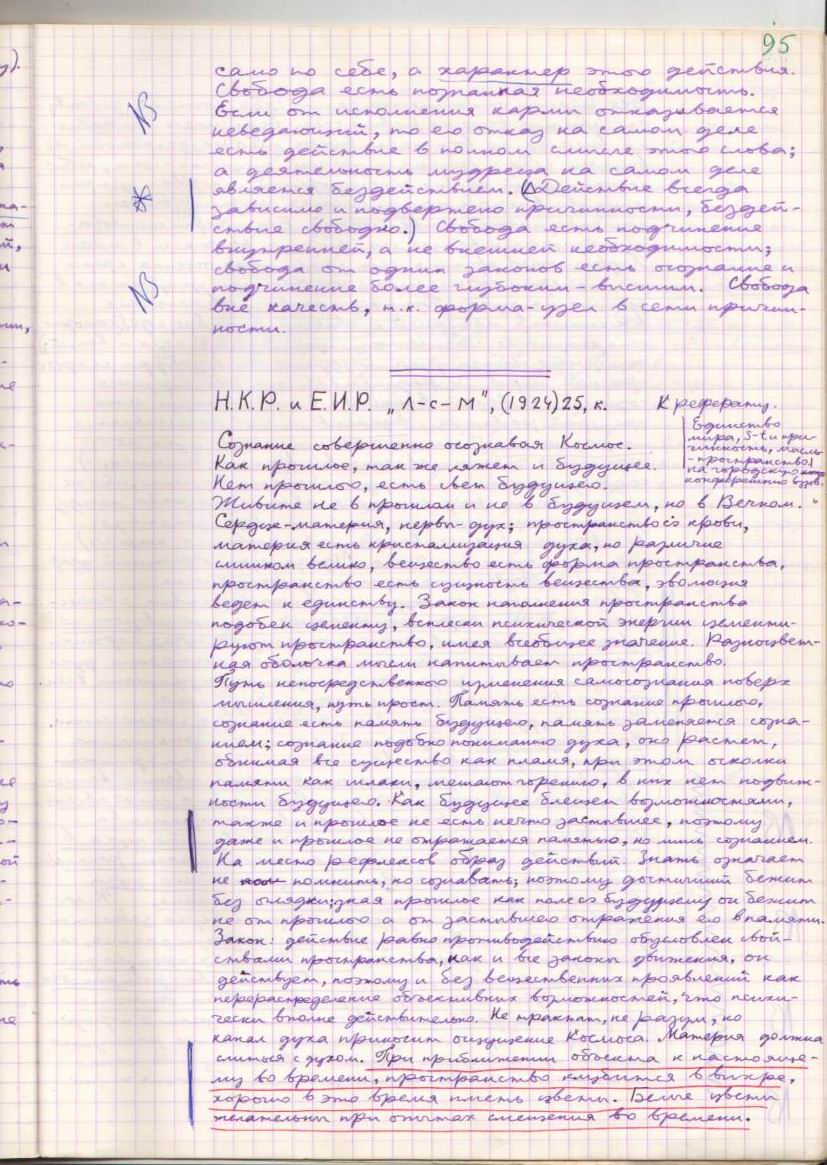 95
само по себе, а характер этого действия.
Свобода есть познанная необходимость.
Если от исполнения кармы отказывается
неведающий, то его отказ на самом деле
есть действие в полном смысле этого слова;
а деятельность мудреца на самом деле
является бездействием. (Действие всегда
зависимо и подвержено причинности, бездей-
ствие свободно.) Свобода есть подчинение
внутренней, а не внешней необходимости;
свобода от одних законов есть осознание и
подчинение более глубоким - высшим. Свобода
вне качеств, т.к. форма-узел в сети причин-
ности.
Н.К.Р. и Е.И.Р. „Л-с-М", (1924)25, к.
К реферату.
Единство
мира, S-t и при-
чинность, мысль
- пространство)
на городскую
конференцию вузов.
Сознание совершенно осознавая Космос.
Как прошлое, так же ляжет и будущее.
Нет прошлого, есть свет будущего.
Живите не в прошлом и не в будущем, но в Вечном.
Сердце-материя, нервы-дух; пространство из крови,
материя есть кристализация духа, но различие
слишком велико, вещество есть форма пространства,
пространство есть сущность вещества, эволюция
ведет к единству. Закон наполнения пространства
подобен цементу, всплески психической энергии цементи-
руют пространство, имея всеобщее значение. Разноцвет-
ная оболочка мысли напитывает пространство.
Путь непосредственного изменения самосознания поверх
мышления, путь прост. Память есть сознание прошлого,
сознание есть память будущего, память заменяется созна-
нием; сознание подобно пониманию духа, оно растет,
обнимая все существо как пламя, при этом осколки
памяти как шлаки, мешают горению, в них нет подвиж-
ности будущего. Как будущее блещет возможностями,
также и прошлое не есть нечто застывшее, поэтому
даже и прошлое не отражается памятью, но лишь сознанием.
На место рефлексов образ действий. Знать означает
не помнить, но сознавать; поэтому достигший бежит
без оглядки; зная прошлое как полет в будущему он бежит
не от прошлого а от застывшего отражения его в памяти.
Закон: действие равно противодействию обусловлен свой-
ствами пространства, как и все законы движения, он
действует, поэтому и без вещественных проявлений как
перераспределение объективных возможностей, что психи-
чески вполне действительно. Не трактат, не разум, но
канал духа приносит ощущение Космоса. Материя должна
слиться с духом. При приближении объекта к настояще-
му во времени, пространство клубится в вихре,
хорошо в это время иметь цветы. Белые цветы
желательны при опытах смещения во времени.